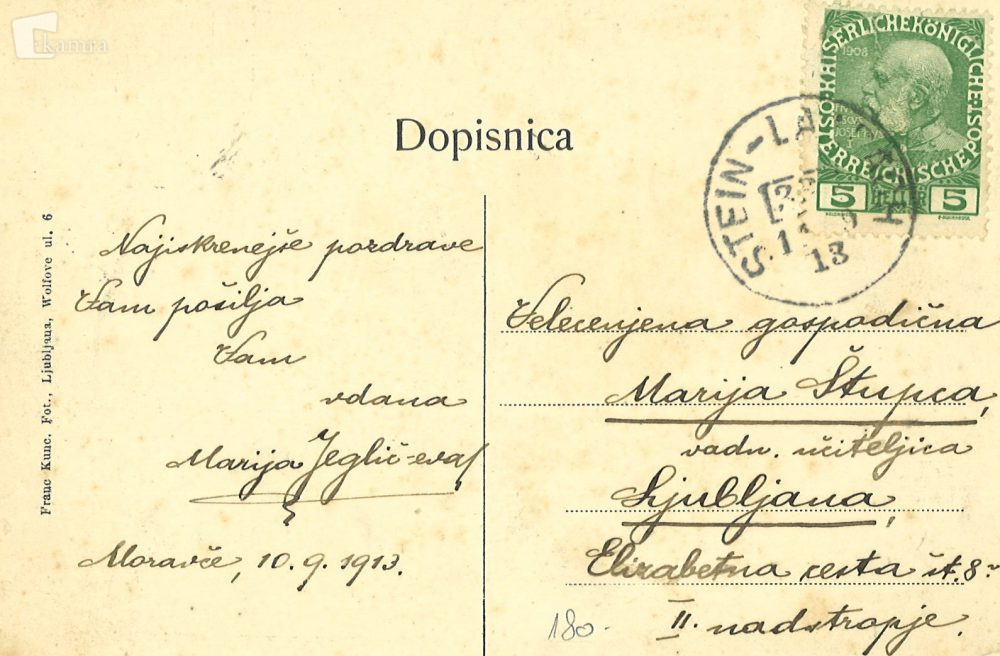 kamra
KAISERLICHEKÖNIGLICHE
ÖSTERREICHISCHEPOST
1908
5 HELLER 5
STEIN-LA
13
Dopisnica
Franc Kunc. Fot., Ljubljana, Wolfove ul. 6
Najiskrenejše pozdrave
Vam pošilja
Vam
vdana
Marija Jeglič-eva
Moravče, 10.9.1913.
Velecenjena gospodična
Marija Štupca,
vadn. učiteljica
Ljubljana,
Elizabetna cesta št. 8.
II. nadstropje.
180.-